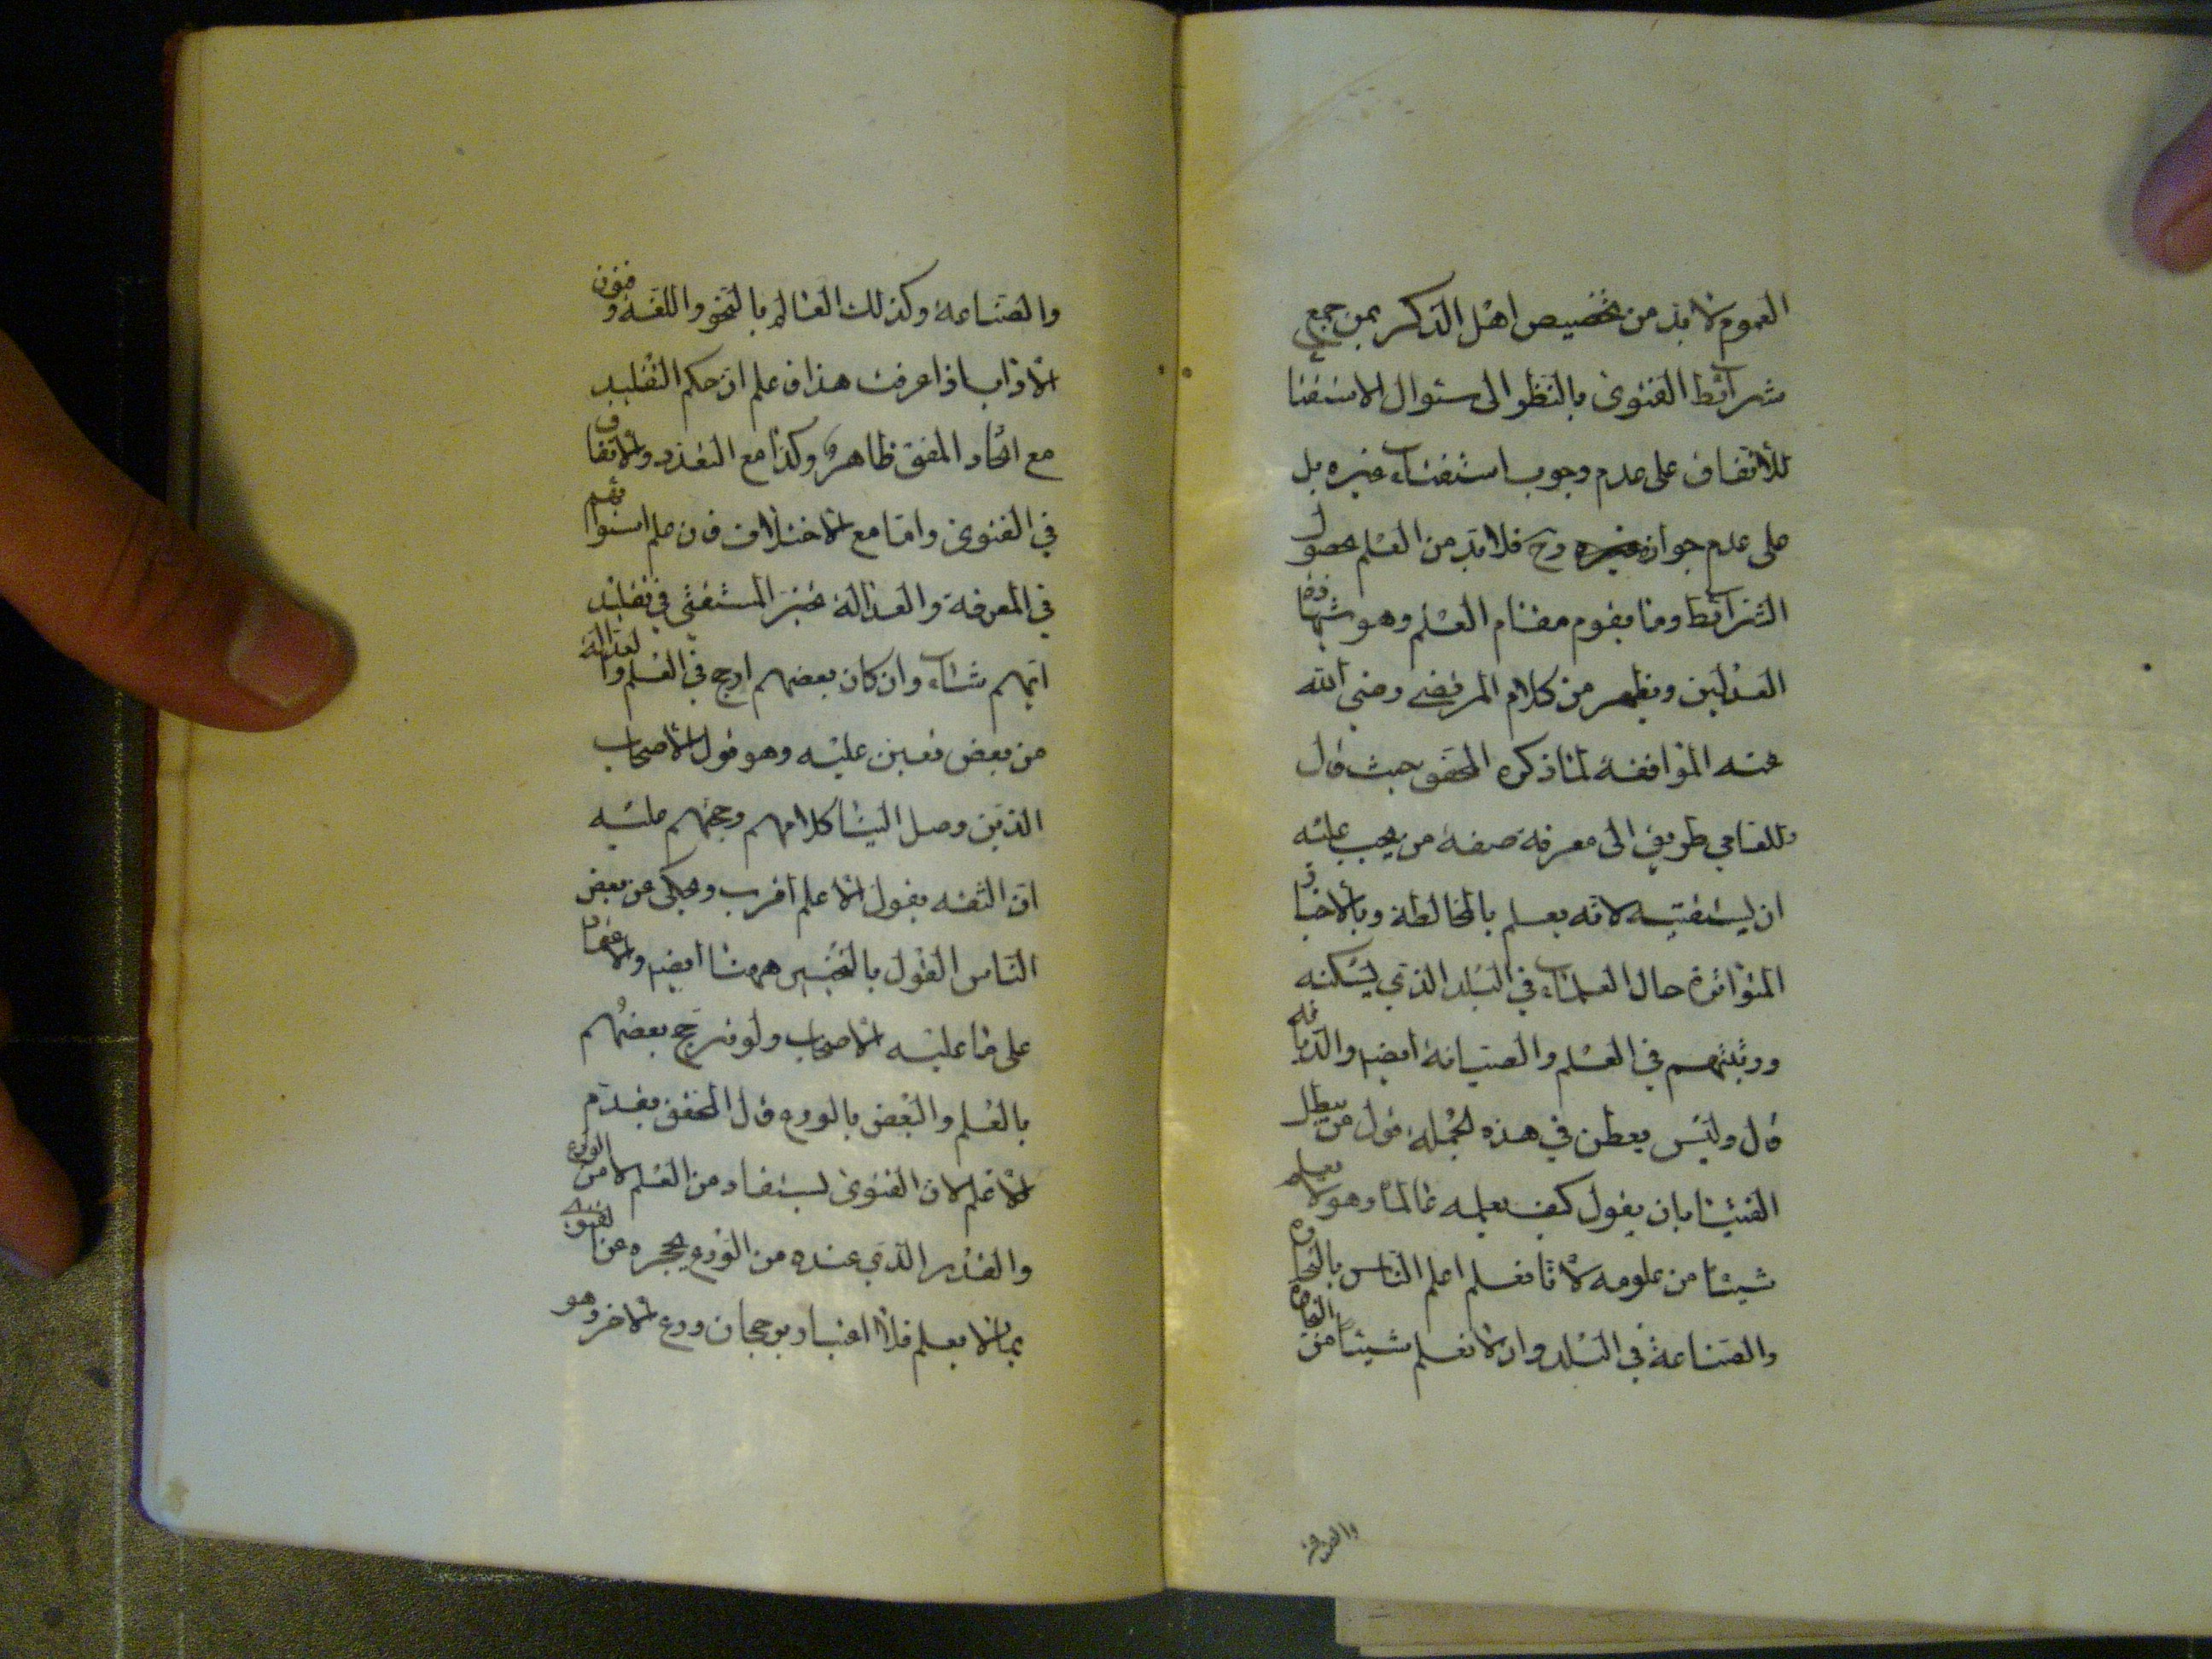 العموم لا بد من تخصيص اهل الذكر بمن جمع
شرائط الفتوى بالنظر الى سئوال الاستفتا
للأتفاق على عدم وجوب استفتاء غيره بل
على عدم جوازه وح فلا بد من العلم بحصول
الشرائط وما يقوم مقام العلم وهو شهادة
العدلين ويظهر من كلام المرتضى رضي الله
عنه الموافقة لما ذكره المحقق حيث قال
وللعامي طريق الى معرفة صفة من يجب عليه
ان يستفتيه لانه يعلم بالمخالطة وبالأخبار
المتواترة حال العلماء في البلد الذي يسكنه
ورتبتهم في العلم والصيانة ايضم والديانة
قال وليس يطعن في هذه الجملة قول من يبطل
الفتيا بان يقول كيف يعلمه عالما وهو لا يعلم
شيئا من علومه لأنا نعلم اعلم الناس بالتجارة
والصناعة في البلد وان لا نعلم شيئا من التجارة
والصناعة وكذلك العالم بالنحو واللغة وفنون
الأداب اذا عرفت هذا فاعلم ان حكم التقليد
مع اتحاد المفتي ظاهر وكذا مع التعدد والأتفاق
في الفتوى واما مع الأختلاف فان علم استوائهم
في المعرفة والعدالة تخير المستفتي في تقليد
ايهم شاء وان كان بعضهم ارجح في العلم والعدالة
من بعض تعين عليه وهو قول الأصحاب
الذين وصل الينا كلامهم وحجتهم عليه
ان الثقة بقول الأعلم اقرب ويحكى عن بعض
الناس القول بالتخيير ههنا ايضم والأعتماد
على ما عليه الأصحاب ولو ترجح بعضهم
بالعلم والبعض بالورع قال المحقق يقدم
الأعلم لان الفتوى تستفاد من العلم لا من الورع
والقدر الذي عنده من الورع يحجره عن الفتوى
بما لا يعلم فلا اعتبار برجحان ورع الأخر وهو